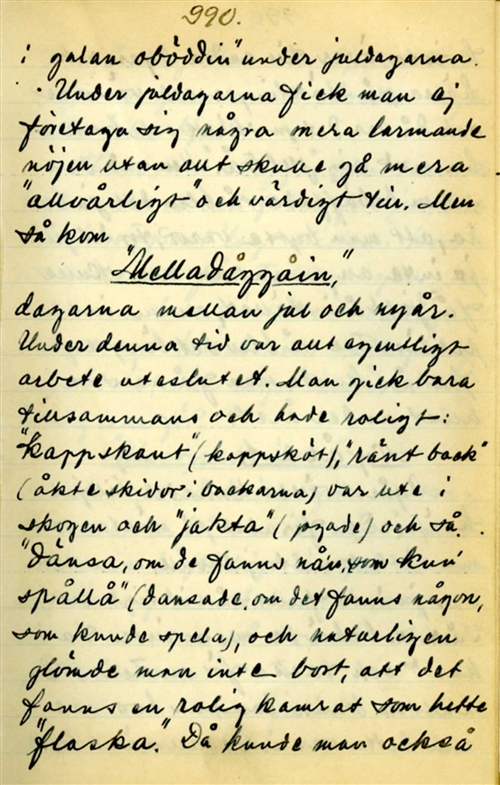 990.
i galan oböddin" under juldagarna.
Under juldagarna fick man ej
företaga sig några mera larmande
nöjen utan allt skulle gå mera
"allvårligt" och värdigt till. Men
så kom
"Melladåggåin,"
dagarna mellan jul och nyår.
Under denna tid var allt egentligt
arbete uteslutet. Man gick bara
tillsammans och hade roligt:
"kappskaut" (kappsköt), "ränt back"
(åkte skidor i backarna) var ute i
skogen och "jakta" (jagade) och så
"dånsa, om de fanns nån, som kun
spållå" (dansade, om det fanns någon,
som kunde spela), och naturligen
glömde man inte bort, att det
fanns en rolig kamrat som hette
"flaska." Då kunde man också